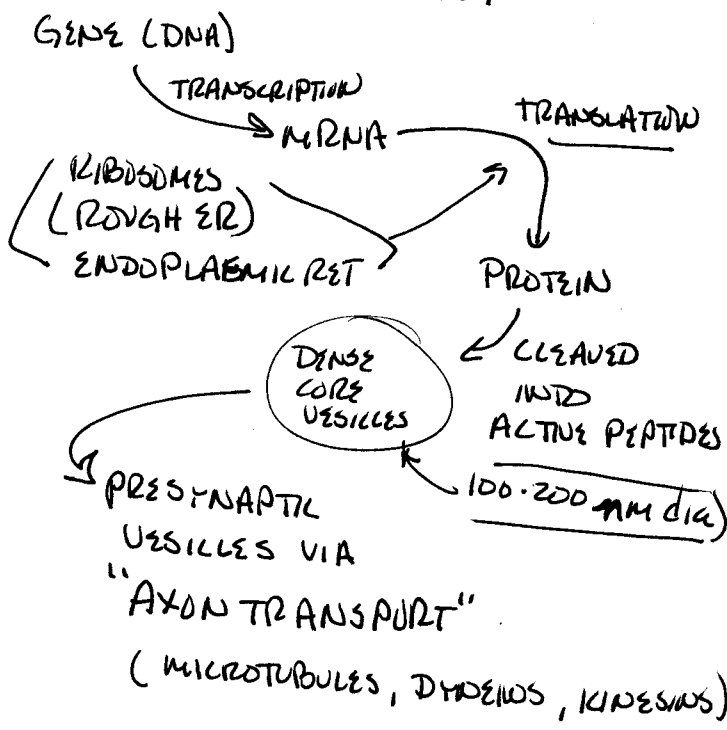 GENE (DNA)
TRANSCRIPTION
mRNA
TRANSLATION
RIBOSOMES
(ROUGH ER)
ENDOPLAEMIC RET
PROTEIN
CLEAVED
INTO
ACTIVE PEPTIDES
DENSE
CORE
VESICLES
100-200 nm dia)
PRESYNAPTIC
VESICLES VIA
"AXON TRANSPORT"
(MICROTUBULES, DYNEINS, KINESINS)